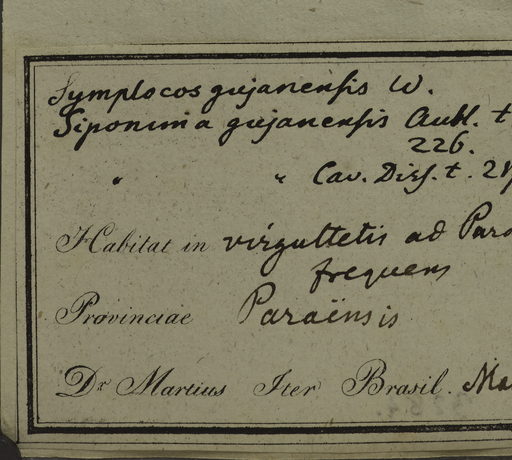 Symplocos gujanensis W.
Siponima gujanensis Aubl. t
226.
" " Cav. Diss. t. 21
Habitat in virgultetis ad Para
frequens
Provinciae Paraënsis
Dr. Martius Iter Brasil. Ma